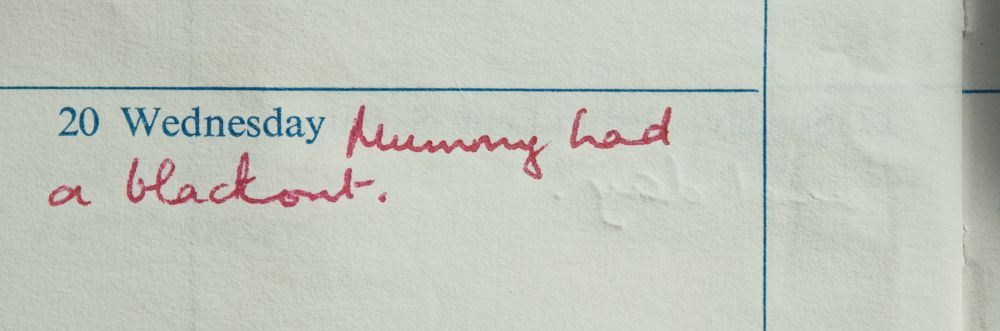 20 Wednesday Mummy had
a blackout.